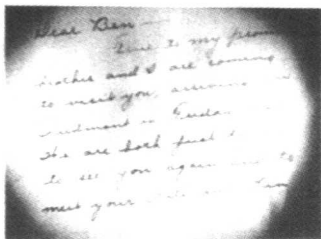 Dear Ben —
True to my prom
brother and I are coming
to visit you, arriving
on Friday
We are both
to see you again and to
meet your